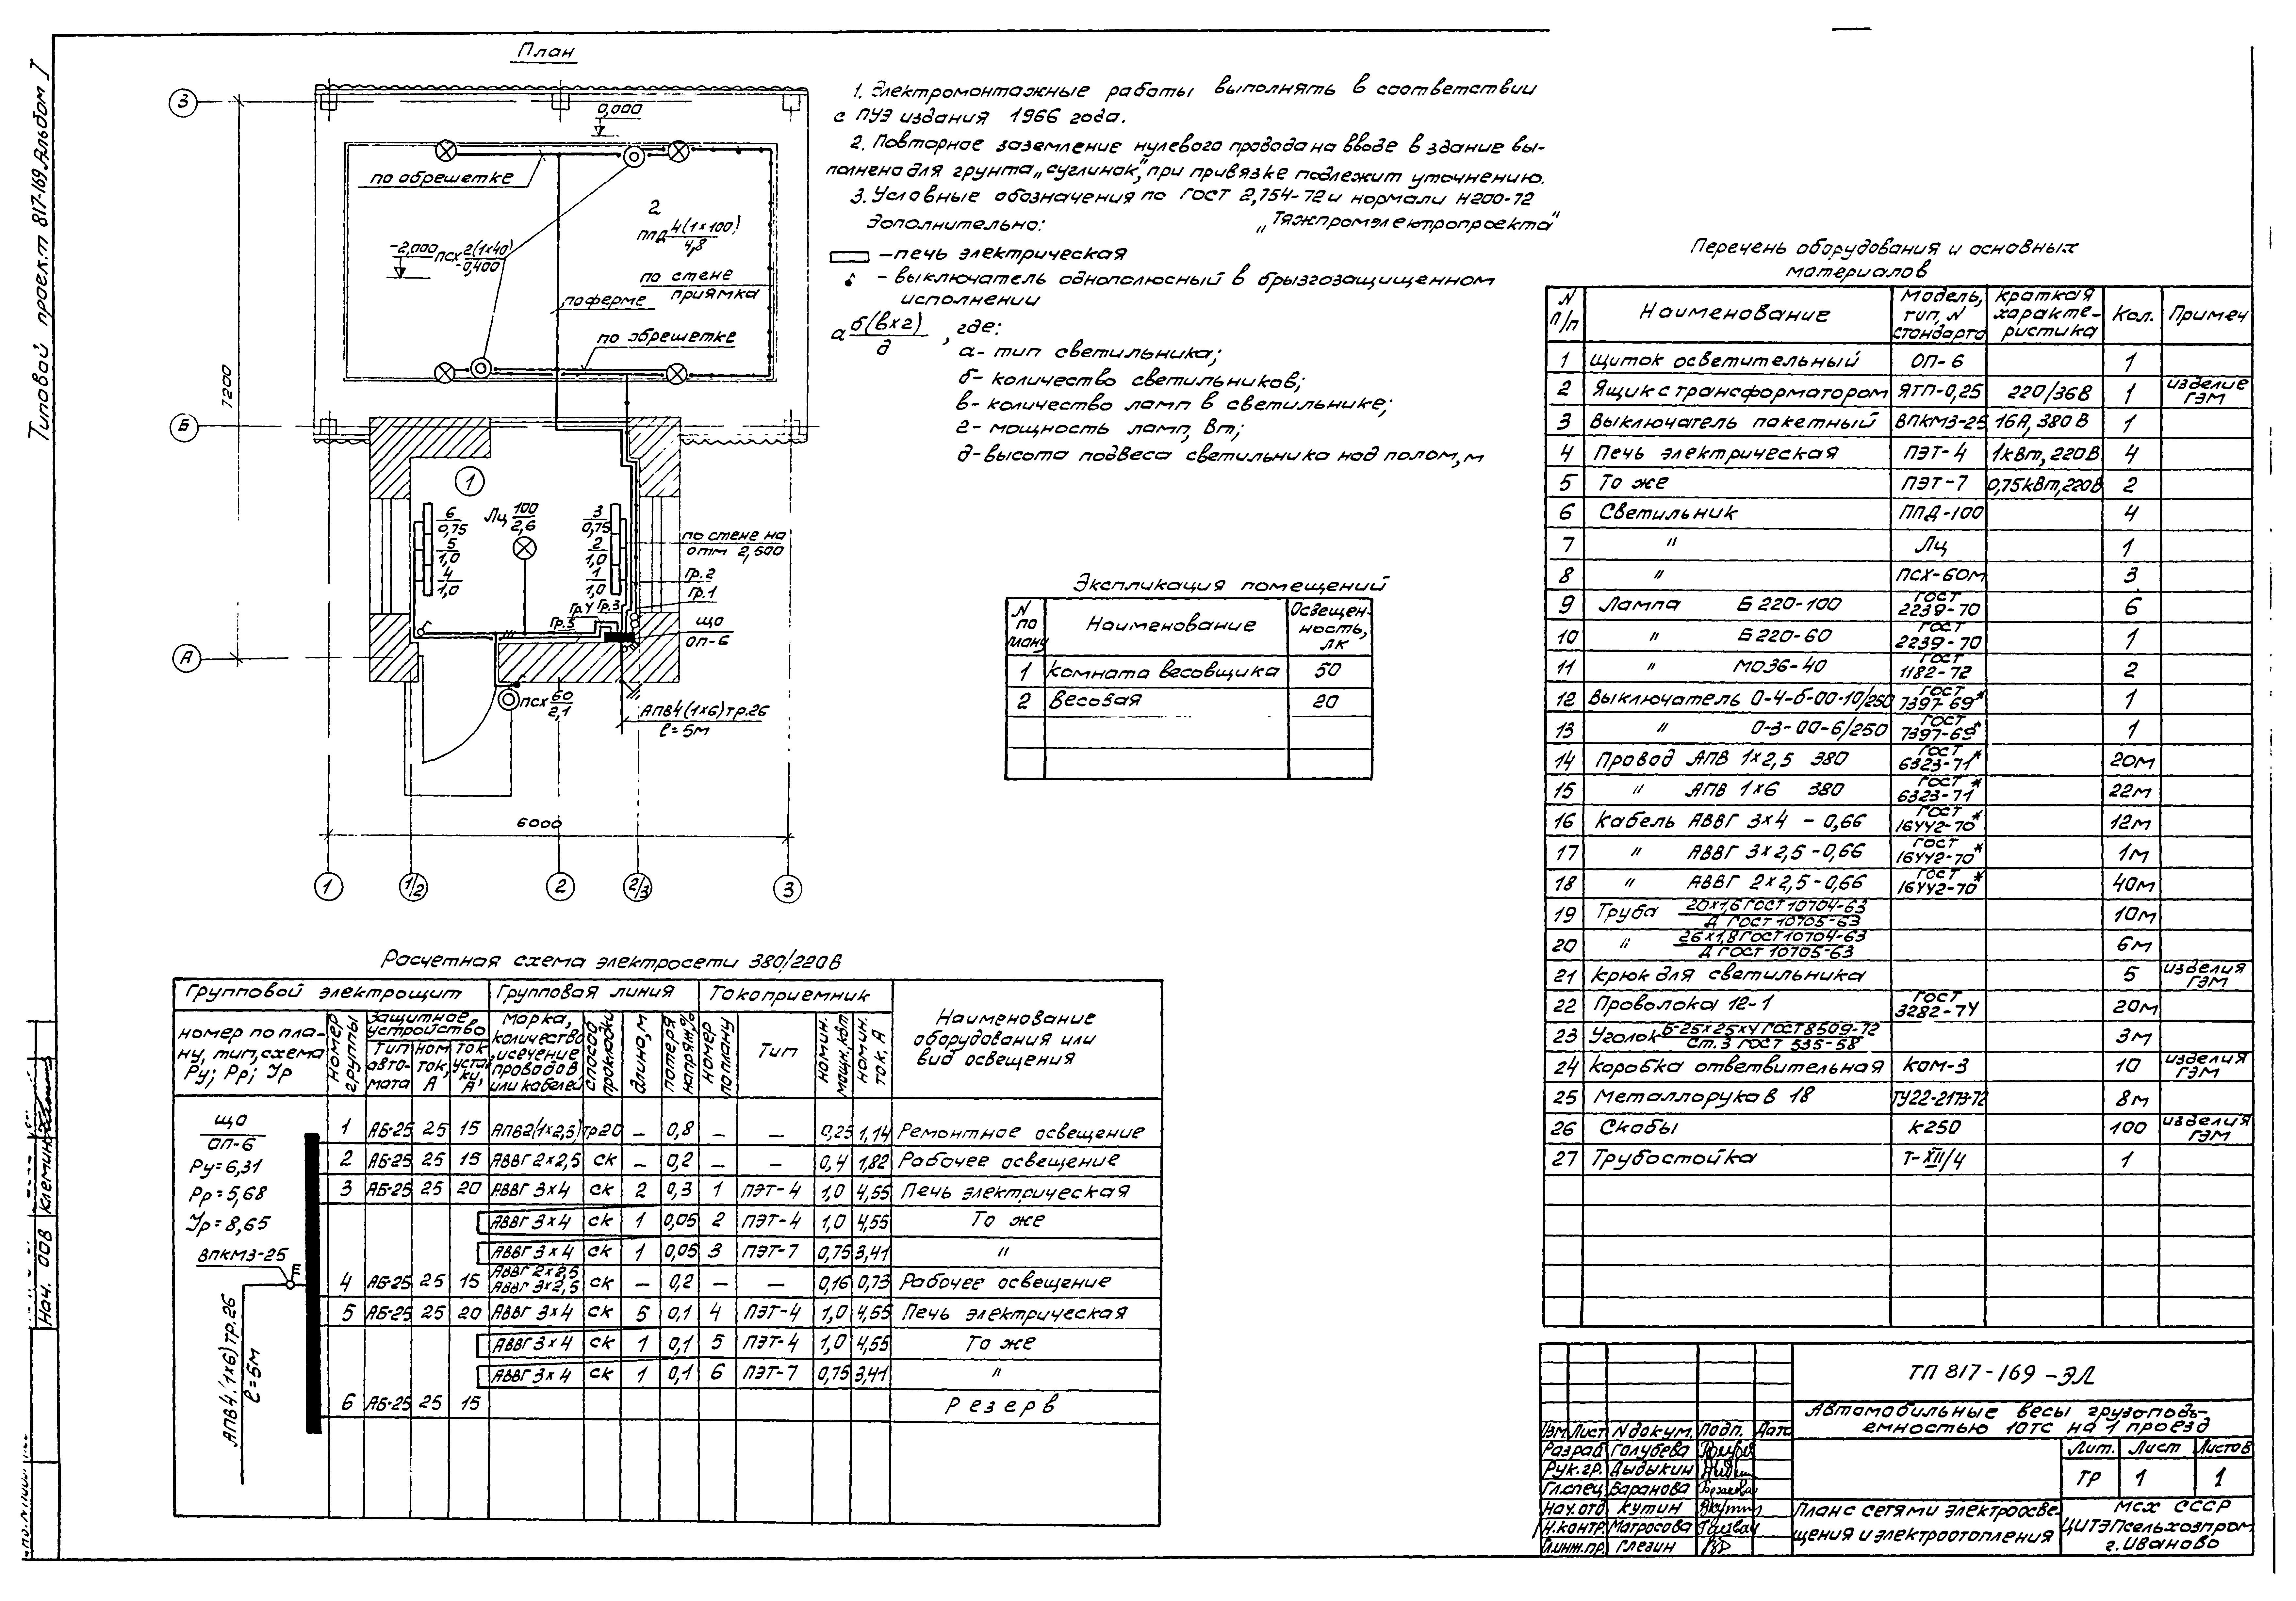 Типовой проект 817-169 Альбом I
План
3
Б
А
7200
6000
1
1/2
2
2/3
3
0,000
по обрешетке
2
ППД 4(1×100) / 4,8
-2,000
ПСХ 2(1×40) / -0,400
по стене
приямка
по ферме
по обрешетке
1
6 / 0,75
5 / 1,0
4 / 1,0
Лц 100 / 2,6
3 / 0,75
2 / 1,0
1 / 1,0
по стене на
отм 2,500
Гр.2
Гр.1
Гр.4 Гр.3
Гр.5
ЩО
ОП-6
ПСХ 60 / 2,1
АПВ4(1×6)тр.26
ℓ=5м
1. Электромонтажные работы выполнять в соответствии
с ПУЭ издания 1966 года.
2. Повторное заземление нулевого провода на вводе в здание вы-
полнена для грунта „суглинок", при привязке подлежит уточнению.
3. Условные обозначения по ГОСТ 2,754-72 и нормали Н200-72
Дополнительно: „Тяжпромэлектропроекта"
-печь электрическая
- выключатель однополюсный в брызгозащищенном
исполнении
а б(в×г) / д , где:
а- тип светильника;
б- количество светильников;
в- количество ламп в светильнике;
г- мощность ламп, Вт;
д- высота подвеса светильника над полом, м
Экспликация помещений
N по плану | Наименование | Освещен-ность, лк
1 Комната весовщика 50
2 Весовая 20
Перечень оборудования и основных
материалов
N п/п | Наименование | Модель, тип, N стандарта | Краткая характе-ристика | Кол. | Примеч
1 Щиток осветительный ОП-6 1
2 Ящик с трансформатором ЯТП-0,25 220/36В 1 изделие ГЭМ
3 Выключатель пакетный ВПКМ3-25 16А, 380В 1
4 Печь электрическая ПЭТ-4 1кВт, 220В 4
5 То же ПЭТ-7 0,75кВт,220В 2
6 Светильник ППД-100 4
7 " Лц 1
8 " ПСХ-60М 3
9 Лампа Б220-100 ГОСТ 2239-70 6
10 " Б220-60 ГОСТ 2239-70 1
11 " МО36-40 ГОСТ 1182-72 2
12 Выключатель 0-4-б-00-10/250 ГОСТ 7397-69* 1
13 " 0-3-00-6/250 ГОСТ 7397-69* 1
14 Провод АПВ 1×2,5 380 ГОСТ 6323-71* 20м
15 " АПВ 1×6 380 ГОСТ 6323-71* 22м
16 Кабель АВВГ 3×4 - 0,66 ГОСТ 16442-70* 12м
17 " АВВГ 3×2,5-0,66 ГОСТ 16442-70* 1м
18 " АВВГ 2×2,5-0,66 ГОСТ 16442-70* 40м
19 Труба 20×1,6 ГОСТ 10704-63 / Д ГОСТ 10705-63 10м
20 " 26×1,8 ГОСТ 10704-63 / Д ГОСТ 10705-63 6м
21 Крюк для светильника 5 изделия ГЭМ
22 Проволока 12-1 ГОСТ 3282-74 20м
23 Уголок Б-25×25×4 ГОСТ 8509-72 / Ст.3 ГОСТ 535-58 3м
24 Коробка ответвительная КОМ-3 10 изделия ГЭМ
25 Металлорукав 18 ТУ22-2173-72 8м
26 Скобы К250 100 изделия ГЭМ
27 Трубостойка Т-XII/4 1
Расчетная схема электросети 380/220В
Групповой электрощит | Групповая линия | Токоприемник | Наименование оборудования или вид освещения
Номер по пла-ну, тип, схема Ру; Рр; Iр | Номер группы | Защитное устройство | Тип авто-мата | Ном ток, А | Ток устав-ки, А | Марка, количество, исечение проводов или кабелей | Способ прокладки | Длина, м | Потеря напряж.% | Номер по плану | Тип | Номин. мощн. кВт | Номин. ток, А
ЩО
ОП-6
Ру=6,31
Рр=5,68
Iр=8,65
ВПКМ3-25
АПВ4.(1×6)тр.26
ℓ=5м
1 АБ-25 25 15 АПВ2(1×2,5) тр20 — 0,8 — — 0,25 1,14 Ремонтное освещение
2 АБ-25 25 15 АВВГ 2×2,5 СК — 0,2 — — 0,4 1,82 Рабочее освещение
3 АБ-25 25 20 АВВГ 3×4 СК 2 0,3 1 ПЭТ-4 1,0 4,55 Печь электрическая
АВВГ 3×4 СК 1 0,05 2 ПЭТ-4 1,0 4,55 То же
АВВГ 3×4 СК 1 0,05 3 ПЭТ-7 0,75 3,41 "
4 АБ-25 25 15 АВВГ 2×2,5 АВВГ 3×2,5 СК — 0,2 — — 0,16 0,73 Рабочее освещение
5 АБ-25 25 20 АВВГ 3×4 СК 5 0,1 4 ПЭТ-4 1,0 4,55 Печь электрическая
АВВГ 3×4 СК 1 0,1 5 ПЭТ-4 1,0 4,55 То же
АВВГ 3×4 СК 1 0,1 6 ПЭТ-7 0,75 3,41 "
6 АБ-25 25 15 Резерв
ТП 817-169 -ЭЛ
Автомобильные весы грузоподъ-
емностью 10тс на 1 проезд
Изм. Лист N докум. Подп. Дата
Разраб Голубева
Рук.гр. Дыдыкин
Гл.спец Баранова
Нач.отд Кутин
Н.контр. Матросова
Гл.инж.пр. Глезин
Лит. Лист Листов
ТР 1 1
План с сетями электроосве-
щения и электроотопления
МСХ СССР
ЦИТЭПсельхозпром
г. Иваново
Нач. ООВ Клемин